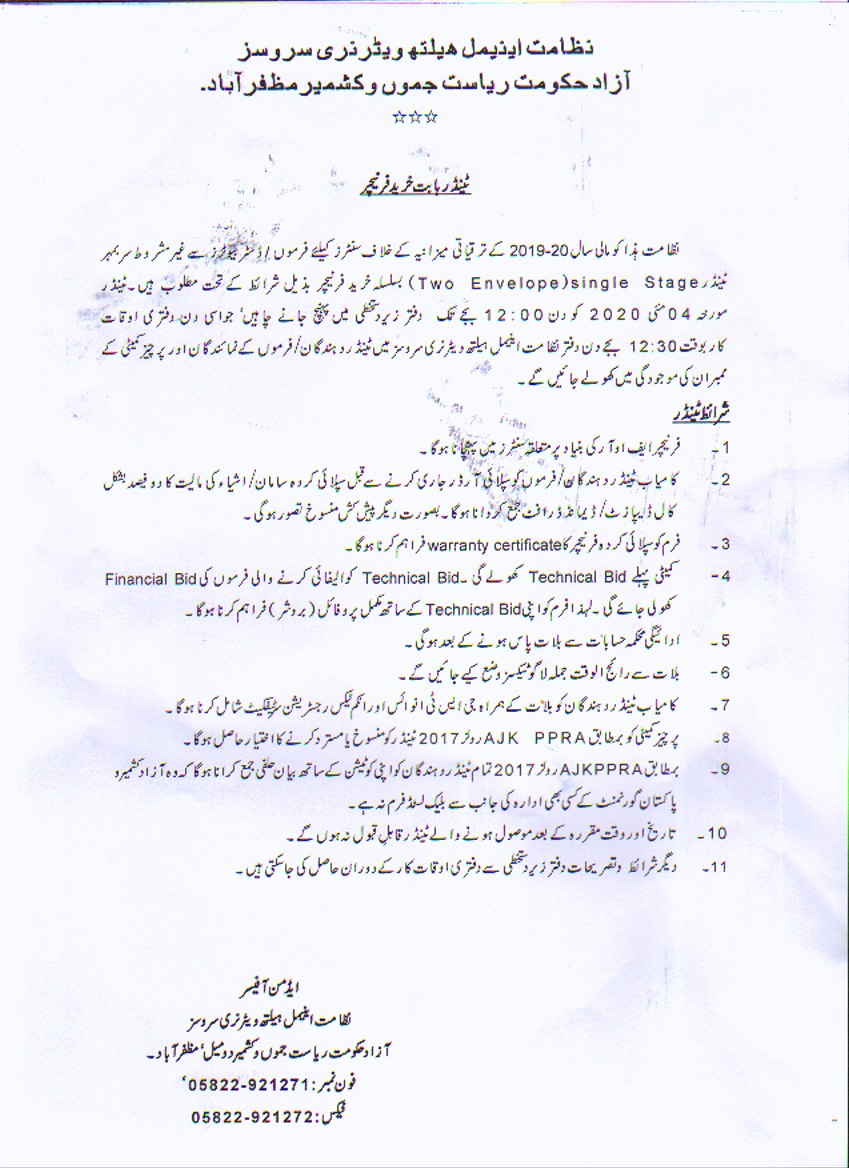 نظامت اینیمل ھیلتھ ویٹرنری سروسز
آزاد حکومت ریاست جموں و کشمیر مظفرآباد۔
☆☆☆
ٹینڈر بابت خرید فرنیچر
نظامت ہذا کو مالی سال 20-2019 کے ترقیاتی میزانیہ کے خلاف سنٹرز کیلئے فرموں/ڈسٹریبیوٹرز سے غیر مشروط سربمہر
ٹینڈر single Stage(Two Envelope) بسلسلہ خرید فرنیچر بذیل شرائط کے تحت مطلوب ہیں۔ ٹینڈر
مورخہ 04 مئی 2020 کو دن 12:00 بجے تک دفتر زیر دستخطی میں پہنچ جانے چاہیں، جو اسی دن دفتری اوقات
کار بوقت 12:30 بجے دن دفتر نظامت اینیمل ہیلتھ ویٹرنری سروسز میں ٹینڈر دہندگان/فرموں کے نمائندگان اور پرچیز کمیٹی کے
ممبران کی موجودگی میں کھولے جائیں گے۔
شرائط ٹینڈر
1۔ فرنیچر ایف او آر کی بنیاد پر متعلقہ سنٹرز میں پہنچانا ہوگا۔
2۔ کامیاب ٹینڈر دہندگان/فرموں کو سپلائی آرڈر جاری کرنے سے قبل سپلائی کردہ سامان/اشیاء کی مالیت کا دو فیصد بشکل
کال ڈیپازٹ/ڈیمانڈ ڈرافٹ جمع کروانا ہوگا۔ بصورت دیگر پیش کش منسوخ تصور ہوگی۔
3۔ فرم کو سپلائی کردہ فرنیچر کا warranty certificate فراہم کرنا ہوگا۔
4- کمیٹی پہلے Technical Bid کھولے گی۔ Technical Bid کوالیفائی کرنے والی فرموں کی Financial Bid
کھولی جائے گی۔ لہذا فرم کو اپنی Technical Bid کے ساتھ مکمل پروفائل (بروشر) فراہم کرنا ہوگا۔
5۔ ادائیگی محکمہ حسابات سے بلات پاس ہونے کے بعد ہوگی۔
6- بلات سے رائج الوقت جملہ لاگو ٹیکسز وضع کیے جائیں گے۔
7۔ کامیاب ٹینڈر دہندگان کو بلات کے ہمراہ جی ایس ٹی انوائس اور انکم ٹیکس رجسٹریشن سرٹیفکیٹ شامل کرنا ہوگا۔
8۔ پرچیز کمیٹی کو بمطابق AJK PPRA رولز 2017 ٹینڈر کو منسوخ یا مسترد کرنے کا اختیار حاصل ہوگا۔
9۔ بمطابق AJKPPRA رولز 2017 تمام ٹینڈر دہندگان کو اپنی کوٹیشن کے ساتھ بیان حلفی جمع کرانا ہوگا کہ وہ آزاد کشمیر و
پاکستان گورنمنٹ کے کسی بھی ادارہ کی جانب سے بلیک لسٹڈ فرم نہ ہے۔
10۔ تاریخ اور وقت مقررہ کے بعد موصول ہونے والے ٹینڈر قابل قبول نہ ہوں گے۔
11۔ دیگر شرائط و تصریحات دفتر زیر دستخطی سے دفتری اوقات کار کے دوران حاصل کی جاسکتی ہیں۔
ایڈمن آفیسر
نظامت اینیمل ہیلتھ ویٹرنری سروسز
آزاد حکومت ریاست جموں و کشمیر دومیل، مظفرآباد۔
فون نمبر: 05822-921271،
فیکس: 05822-921272